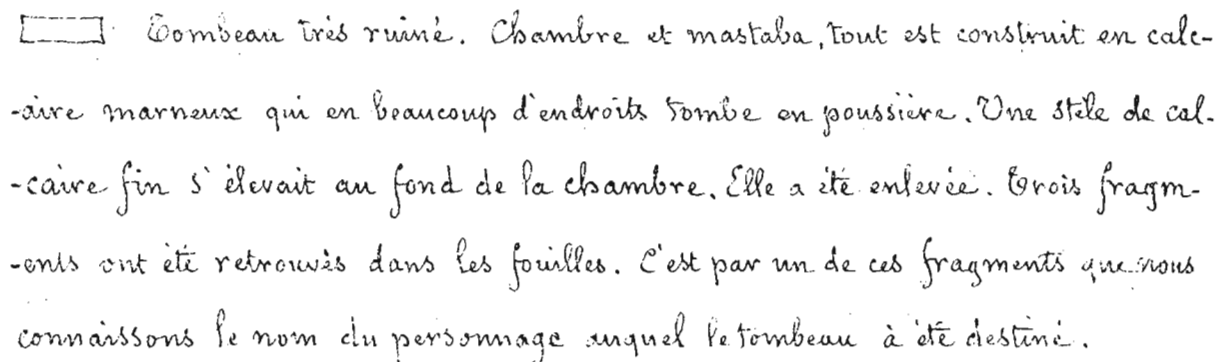 Tombeau très ruiné. Chambre et mastaba, tout est construit en calc-
-aire marneux qui en beaucoup d'endroits tombe en poussière. Une stèle de cal-
-caire fin s'élevait au fond de la chambre. Elle a été enlevée. Trois fragm-
-ents ont été retrouvés dans les fouilles. C'est par un de ces fragments que nous
connaissons le nom du personnage auquel le tombeau à été destiné.